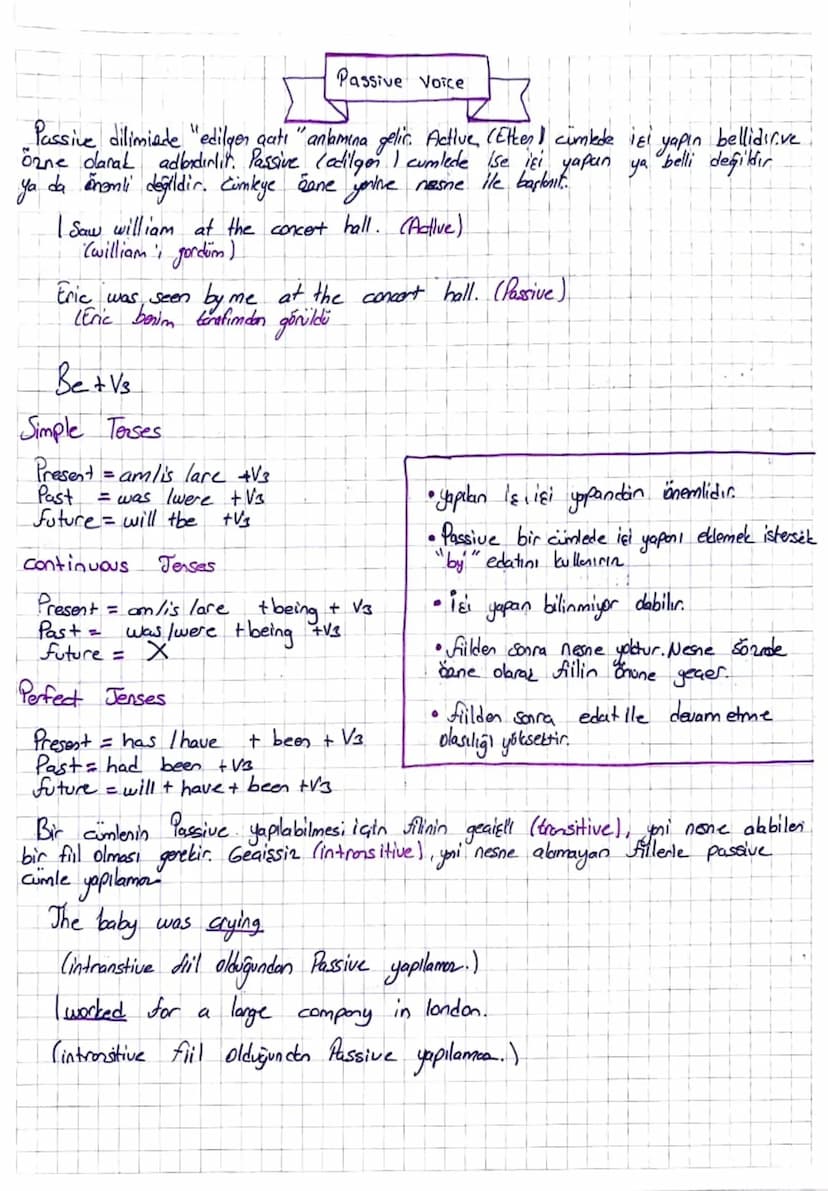 Passive Voice
Passive dilimizde "edilgen çatı" anlamına gelir. Active (Etken) cümlede işi yapan bellidir.ve
özne olarak adlandırılır. Passive (edilgen) cumlede ise işi yapan ya belli değildir
ya da önemli değildir. Cümleye özne yerine nesne ile başlanıt.
I Saw william at the concert hall. (Active)
(william'ı gördüm)
Eric was seen by me at the concert hall. (Passive)
(Eric benim tarafımdan görüldü
Be + V3
Simple Tenses
Present = am/is /are +V3
Past = was /were + V3
future = will tbe +V3
continuous Tenses
Present = am/is /are +being + V3
Past = was/were +being +V3
future = X
Perfect Tenses
Present = has /have + been + V3
Past = had been +V3
future = will + have + been +V3
• yapılan iş, işi yapandan önemlidir.
• Passive bir cümlede işi yapanı eklemek istersek
"by" edatını kullanırız
• İşi yapan bilinmiyor olabilir.
• fiilden sonra nesne yoktur. Nesne sözde
özne olarak fiilin önüne geçer.
• fiilden sonra edat ile devam etme
olasılığı yüksektir.
Bir cümlenin Passive yapılabilmesi için fiilin geçişli (transitive), yani nesne alabilen
bir fiil olması gerekir. Geçissiz (intransitive), yani nesne almayan fiillerle passive
cümle yapılamaz
The baby was crying
(intranstive fiil olduğundan Passive yapılamaz.)
I worked for a large company in london.
(intransitive fiil olduğundan Passive yapılamaz.)